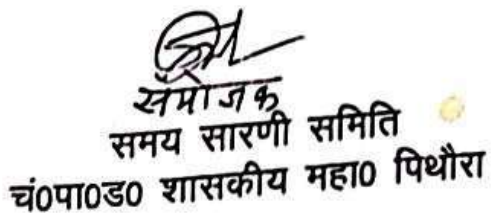 संयोजक
समय सारणी समिति
चं0पा0ड0 शासकीय महा0 पिथौरा